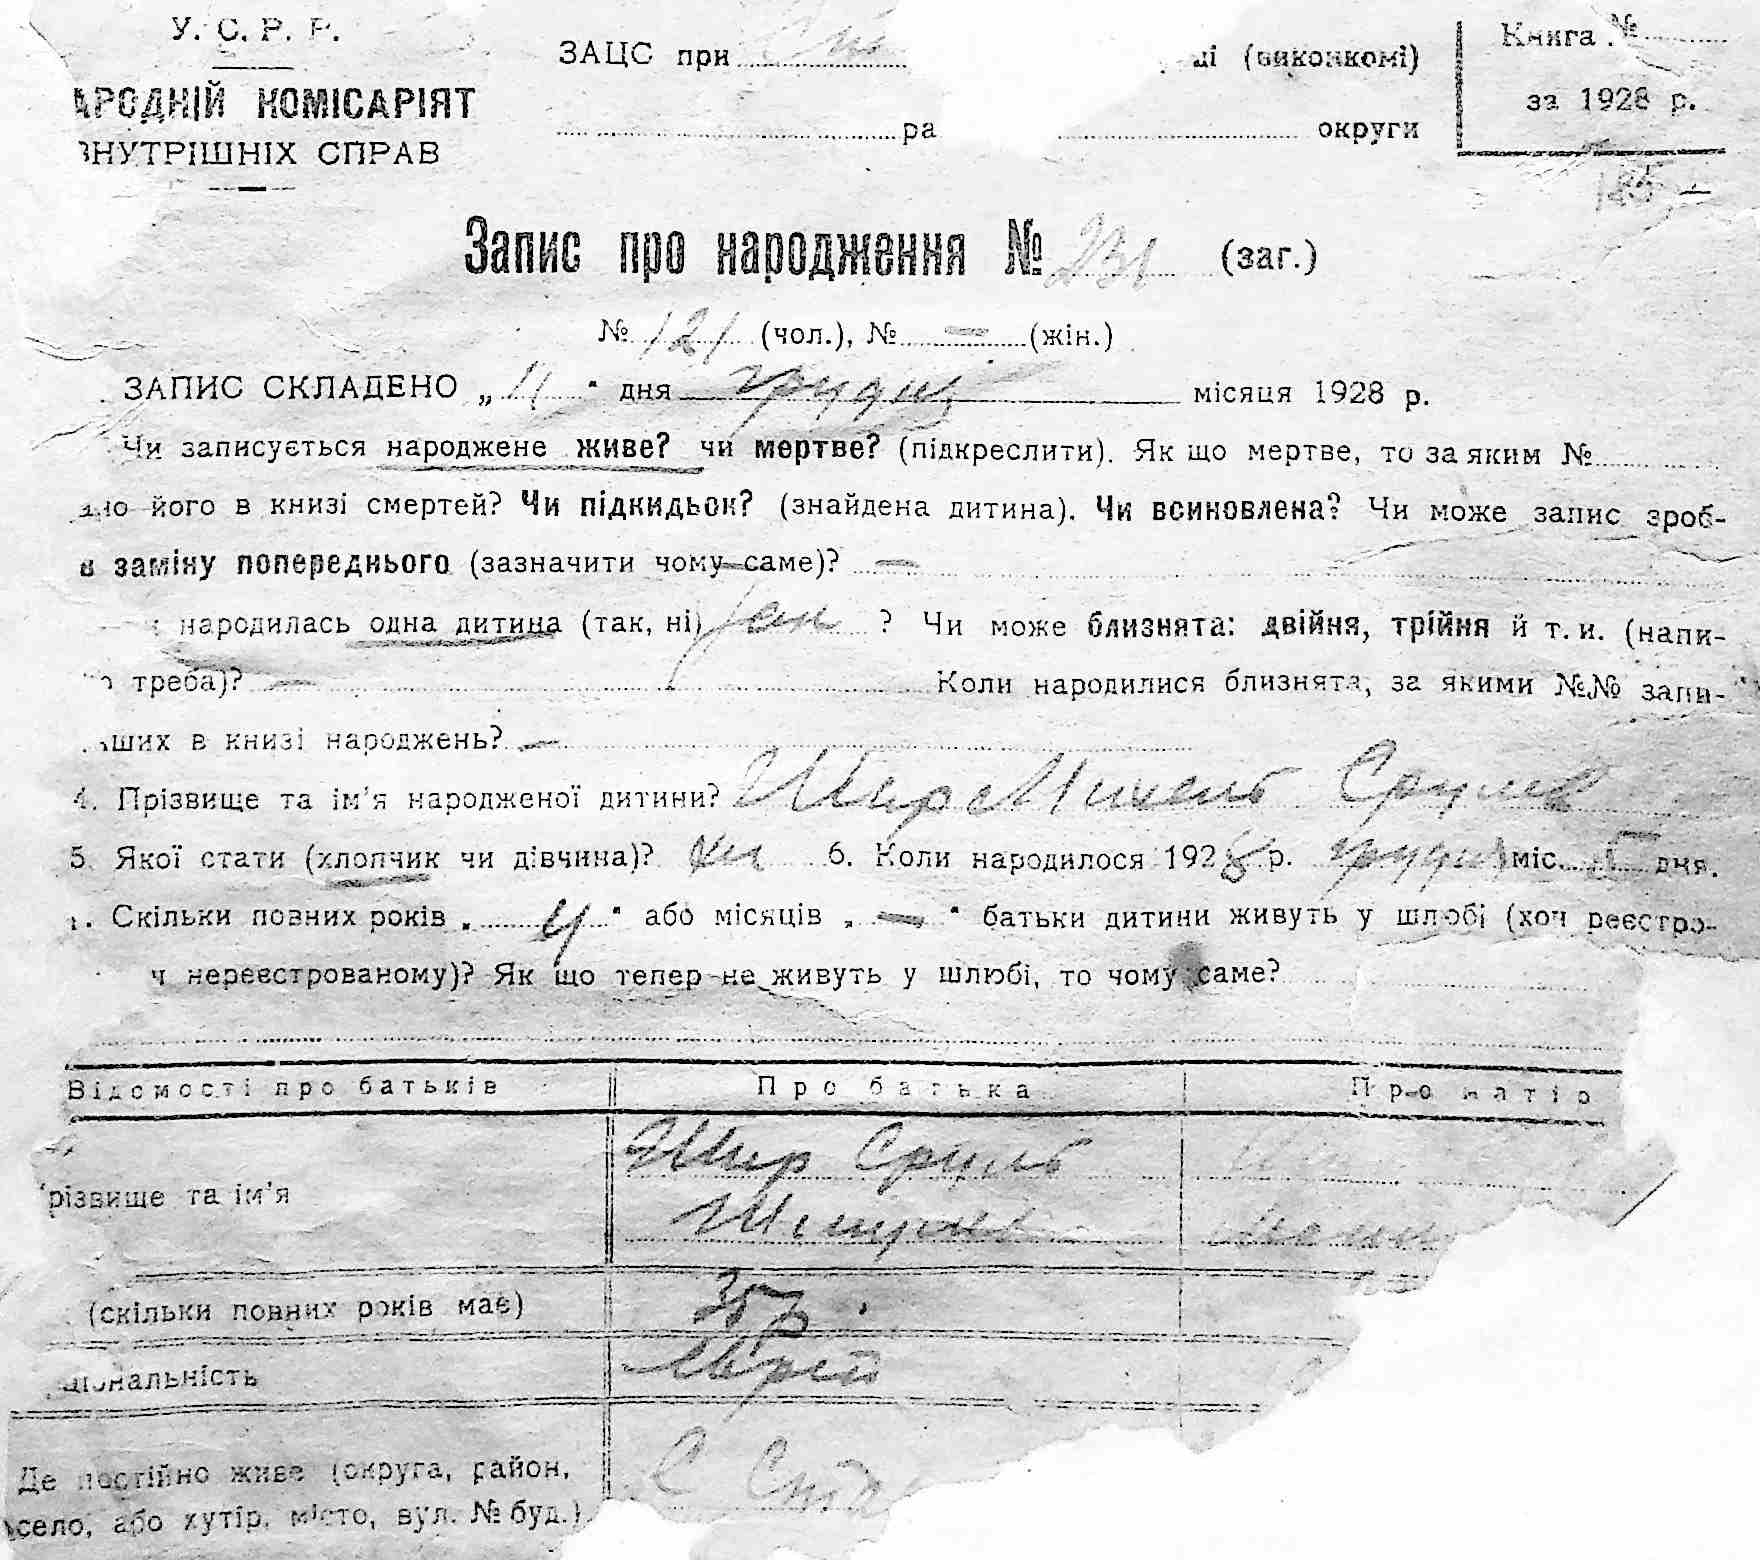 У. С. Р. Р.
АРОДНІЙ КОМІСАРІЯТ
ВНУТРІШНІХ СПРАВ
ЗАЦС при ді (виконкомі)
ра округи
Книга №
за 1928 р.
Запис про народження № 231 (заг.)
№ 121 (чол.), № — (жін.)
ЗАПИС СКЛАДЕНО „11“ дня грудня місяця 1928 р.
Чи записується народжене живе? чи мертве? (підкреслити). Як що мертве, то за яким №
но його в книзі смертей? Чи підкидьок? (знайдена дитина). Чи всиновлена? Чи може запис зроб-
в заміну попереднього (зазначити чому саме)? —
народилась одна дитина (так, ні) так ? Чи може близнята: двійня, трійня й т. и. (напи-
о треба)? — Коли народилися близнята, за якими №№ запи-
ших в книзі народжень? —
4. Прізвище та ім'я народженої дитини? Шир Михель Срулев
5. Якої стати (хлопчик чи дівчина)? 6. Коли народилося 1928 р. грудня міс. 5 дня.
Скільки повних років „4“ або місяців „—“ батьки дитини живуть у шлюбі (хоч реєстро-
ч нереєстрованому)? Як що тепер не живуть у шлюбі, то чому саме?
Відомості про батьків Про батька Про матір
Шир Сруль
різвище та ім'я
(скільки повних років має) 35 р.
ціональність Єврей
Де постійно живе (округа, район,
село, або хутір, місто, вул. № буд.)